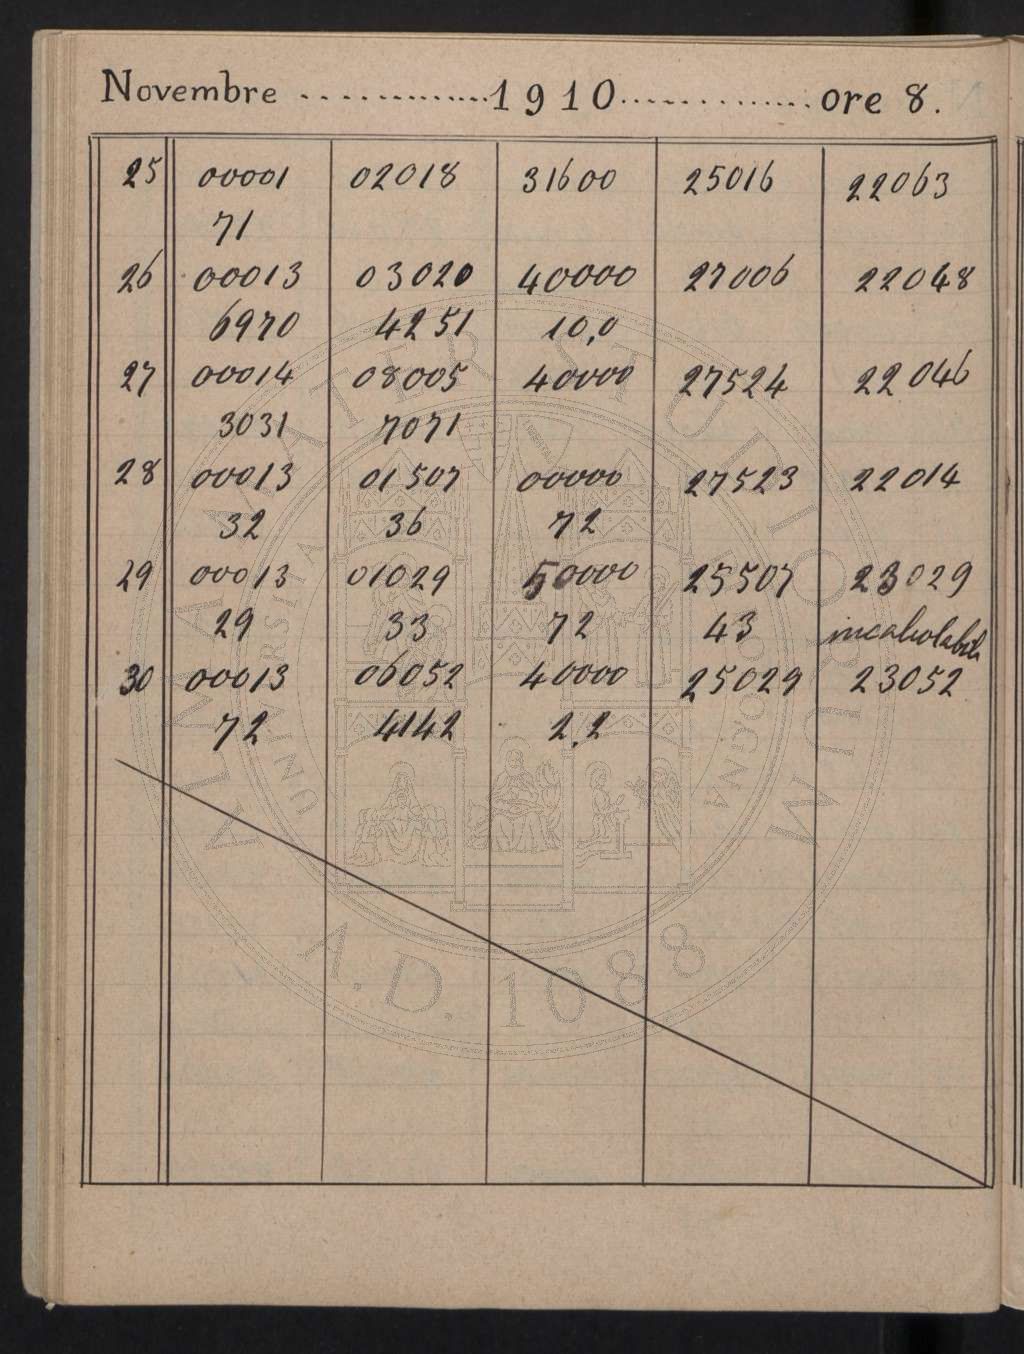 Novembre ............. 1910 ............. ore 8.
25 00001 02018 31600 25016 22063
71
26 00013 03020 40000 27006 22048
6970 4251 10,0
27 00014 08005 40000 27524 22046
3031 7071
28 00013 01507 00000 27523 22014
32 36 72
29 00013 01029 50000 25507 23029
29 33 72 43 incalcolabile
30 00013 06052 40000 25029 23052
72 4142 2,2
ALMA MATER STUDIORUM
A.D. 1088